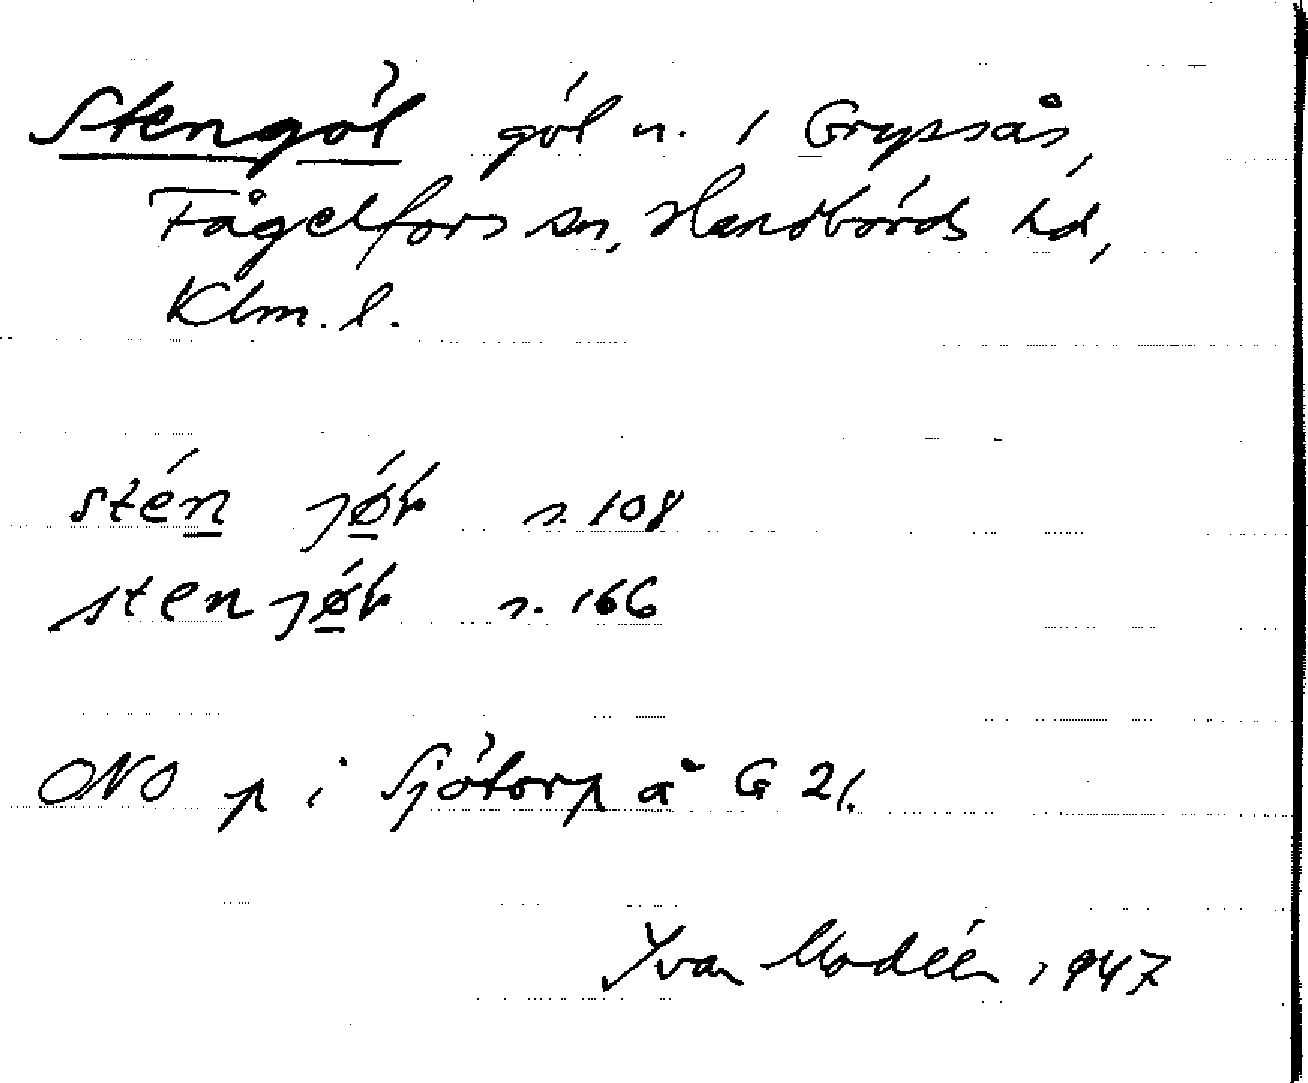 Stengöl göl n. i Grytsås,
Fågelfors sn, Handbörds hd,
Klm. l.
stén jø̀ł s. 108
stenjø̀ł s. 166
ONO p i Sjötorp å G 21.
Yvar Modéer 1947